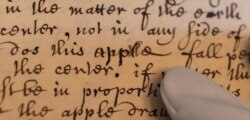 in the matter of the earth
center, not in any side of
dos this apple fall pe
the center. if
st be in proporti
t the apple draw